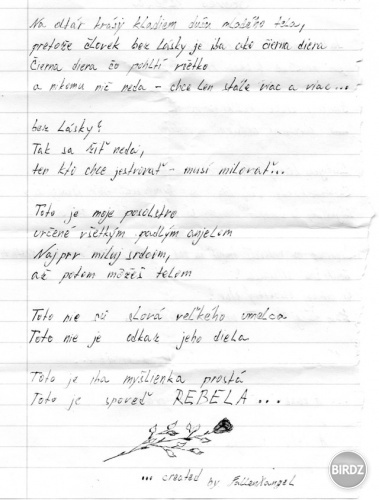 Na oltár krásy kladiem dušu mladého tela,
pretože človek bez Lásky je iba ako čierna diera
Čierna diera čo pohltí všetko
a nikomu nič nedá - chce len stále viac a viac...
bez Lásky?
Tak sa žiť nedá,
ten kto chce jestvovať - musí milovať...
Toto je moje posolstvo
určené všetkým padlým anjelom
Najprv miluj srdcom,
až potom môžeš telom
Toto nie sú slová veľkého umelca
Toto nie je odkaz jeho diela
Toto je iba myšlienka prostá
Toto je spoveď REBELA...
... created by Fallen8angel
BIRDZ